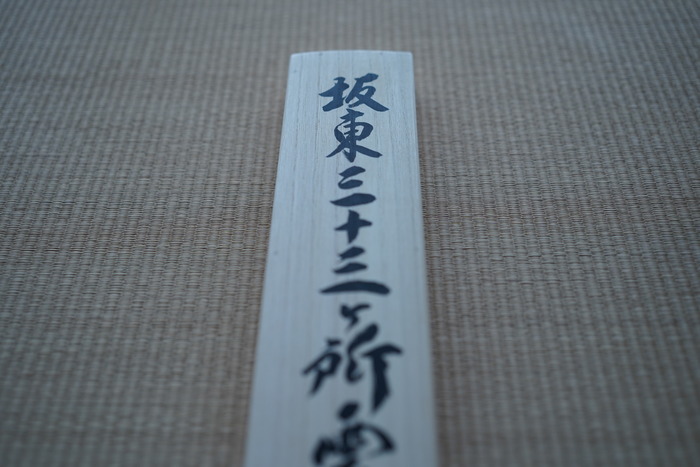 坂東三十三ヶ所霊